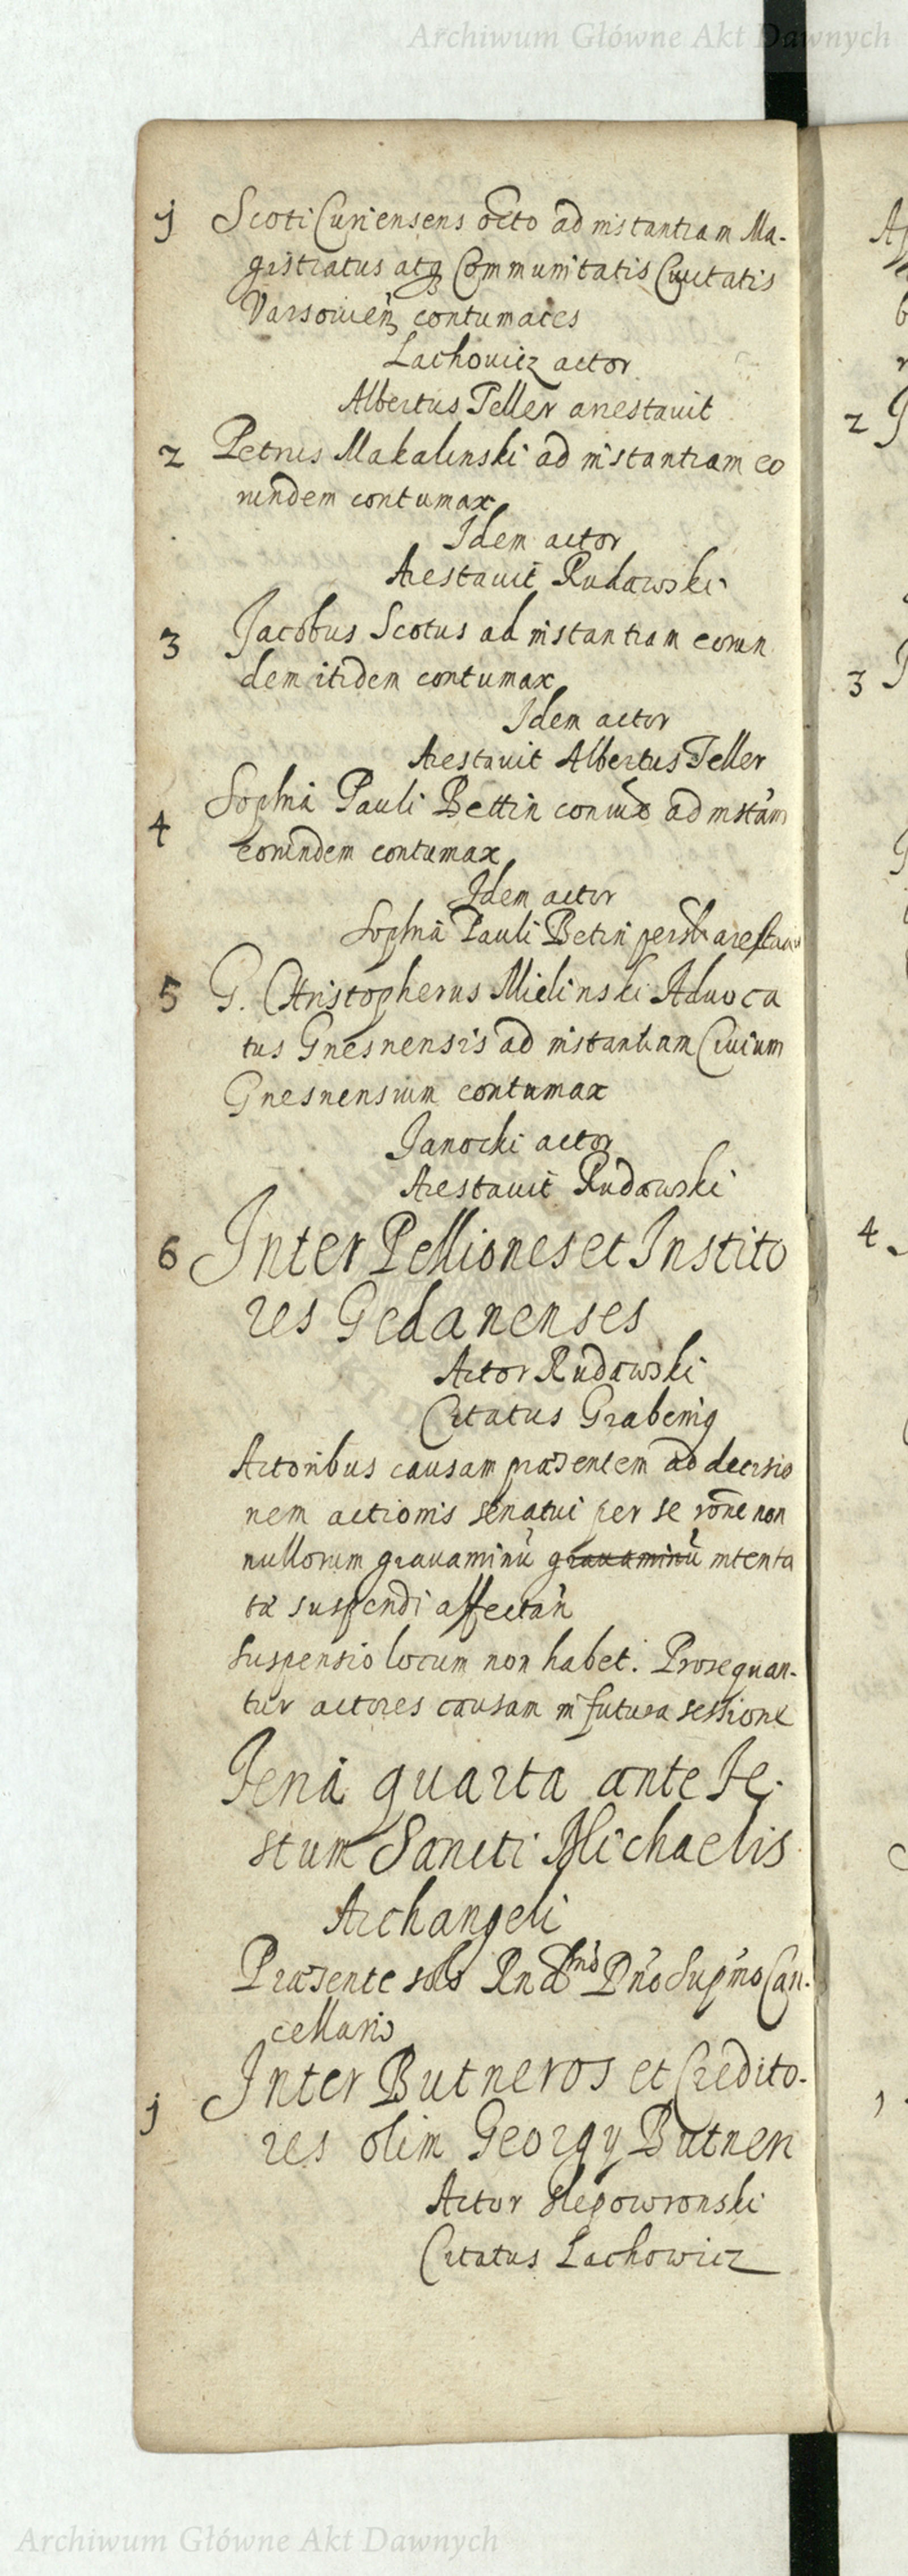 Archiwum Główne Akt Dawnych
1 Scoti Curiensens octo ad instantiam Ma-
gistratus atq Communitatis Civitatis
Varsovien contumaces
Lachowicz actor
Albertus Teller arrestavit
2 Petrus Makalinski ad instantiam eo
rundem contumax
Idem actor
Arestavit Rudawski
3 Jacobus Scotus ad instantiam eorun
dem itidem contumax
Idem actor
Arestavit Albertus Teller
4 Sophia Pauli Bettin coniux ad instam
eorundem contumax
Idem actor
Sophia Pauli Betin
5 G. Christopherus Mielinski Advoca
tus Gnesnensis ad instantiam Civium
Gnesnensium contumax
Janocki actor
Arestavit Rudowski
6 Inter Pelliones et Instito
res Gedanenses
Actor Rudawski
Citatus Grabenig
Actoribus causam præsentem ad decisio
nem actionis senatui per se rone non
nullorum gravaminu gravaminu intenta
ta suspendi affectan
Suspensio locum non habet. Prosequan-
tur actores causam in futura sessione
Feria quarta ante Fe-
stum Sancti Michaelis
Archangeli
Præsente solo Rndmo Dno Supmo Can-
cellario
1 Inter Butneros et Credito-
res olim Georgy Butner
Actor Slepowronski
Citatus Lachowicz
2
3
4
Archiwum Główne Akt Dawnych